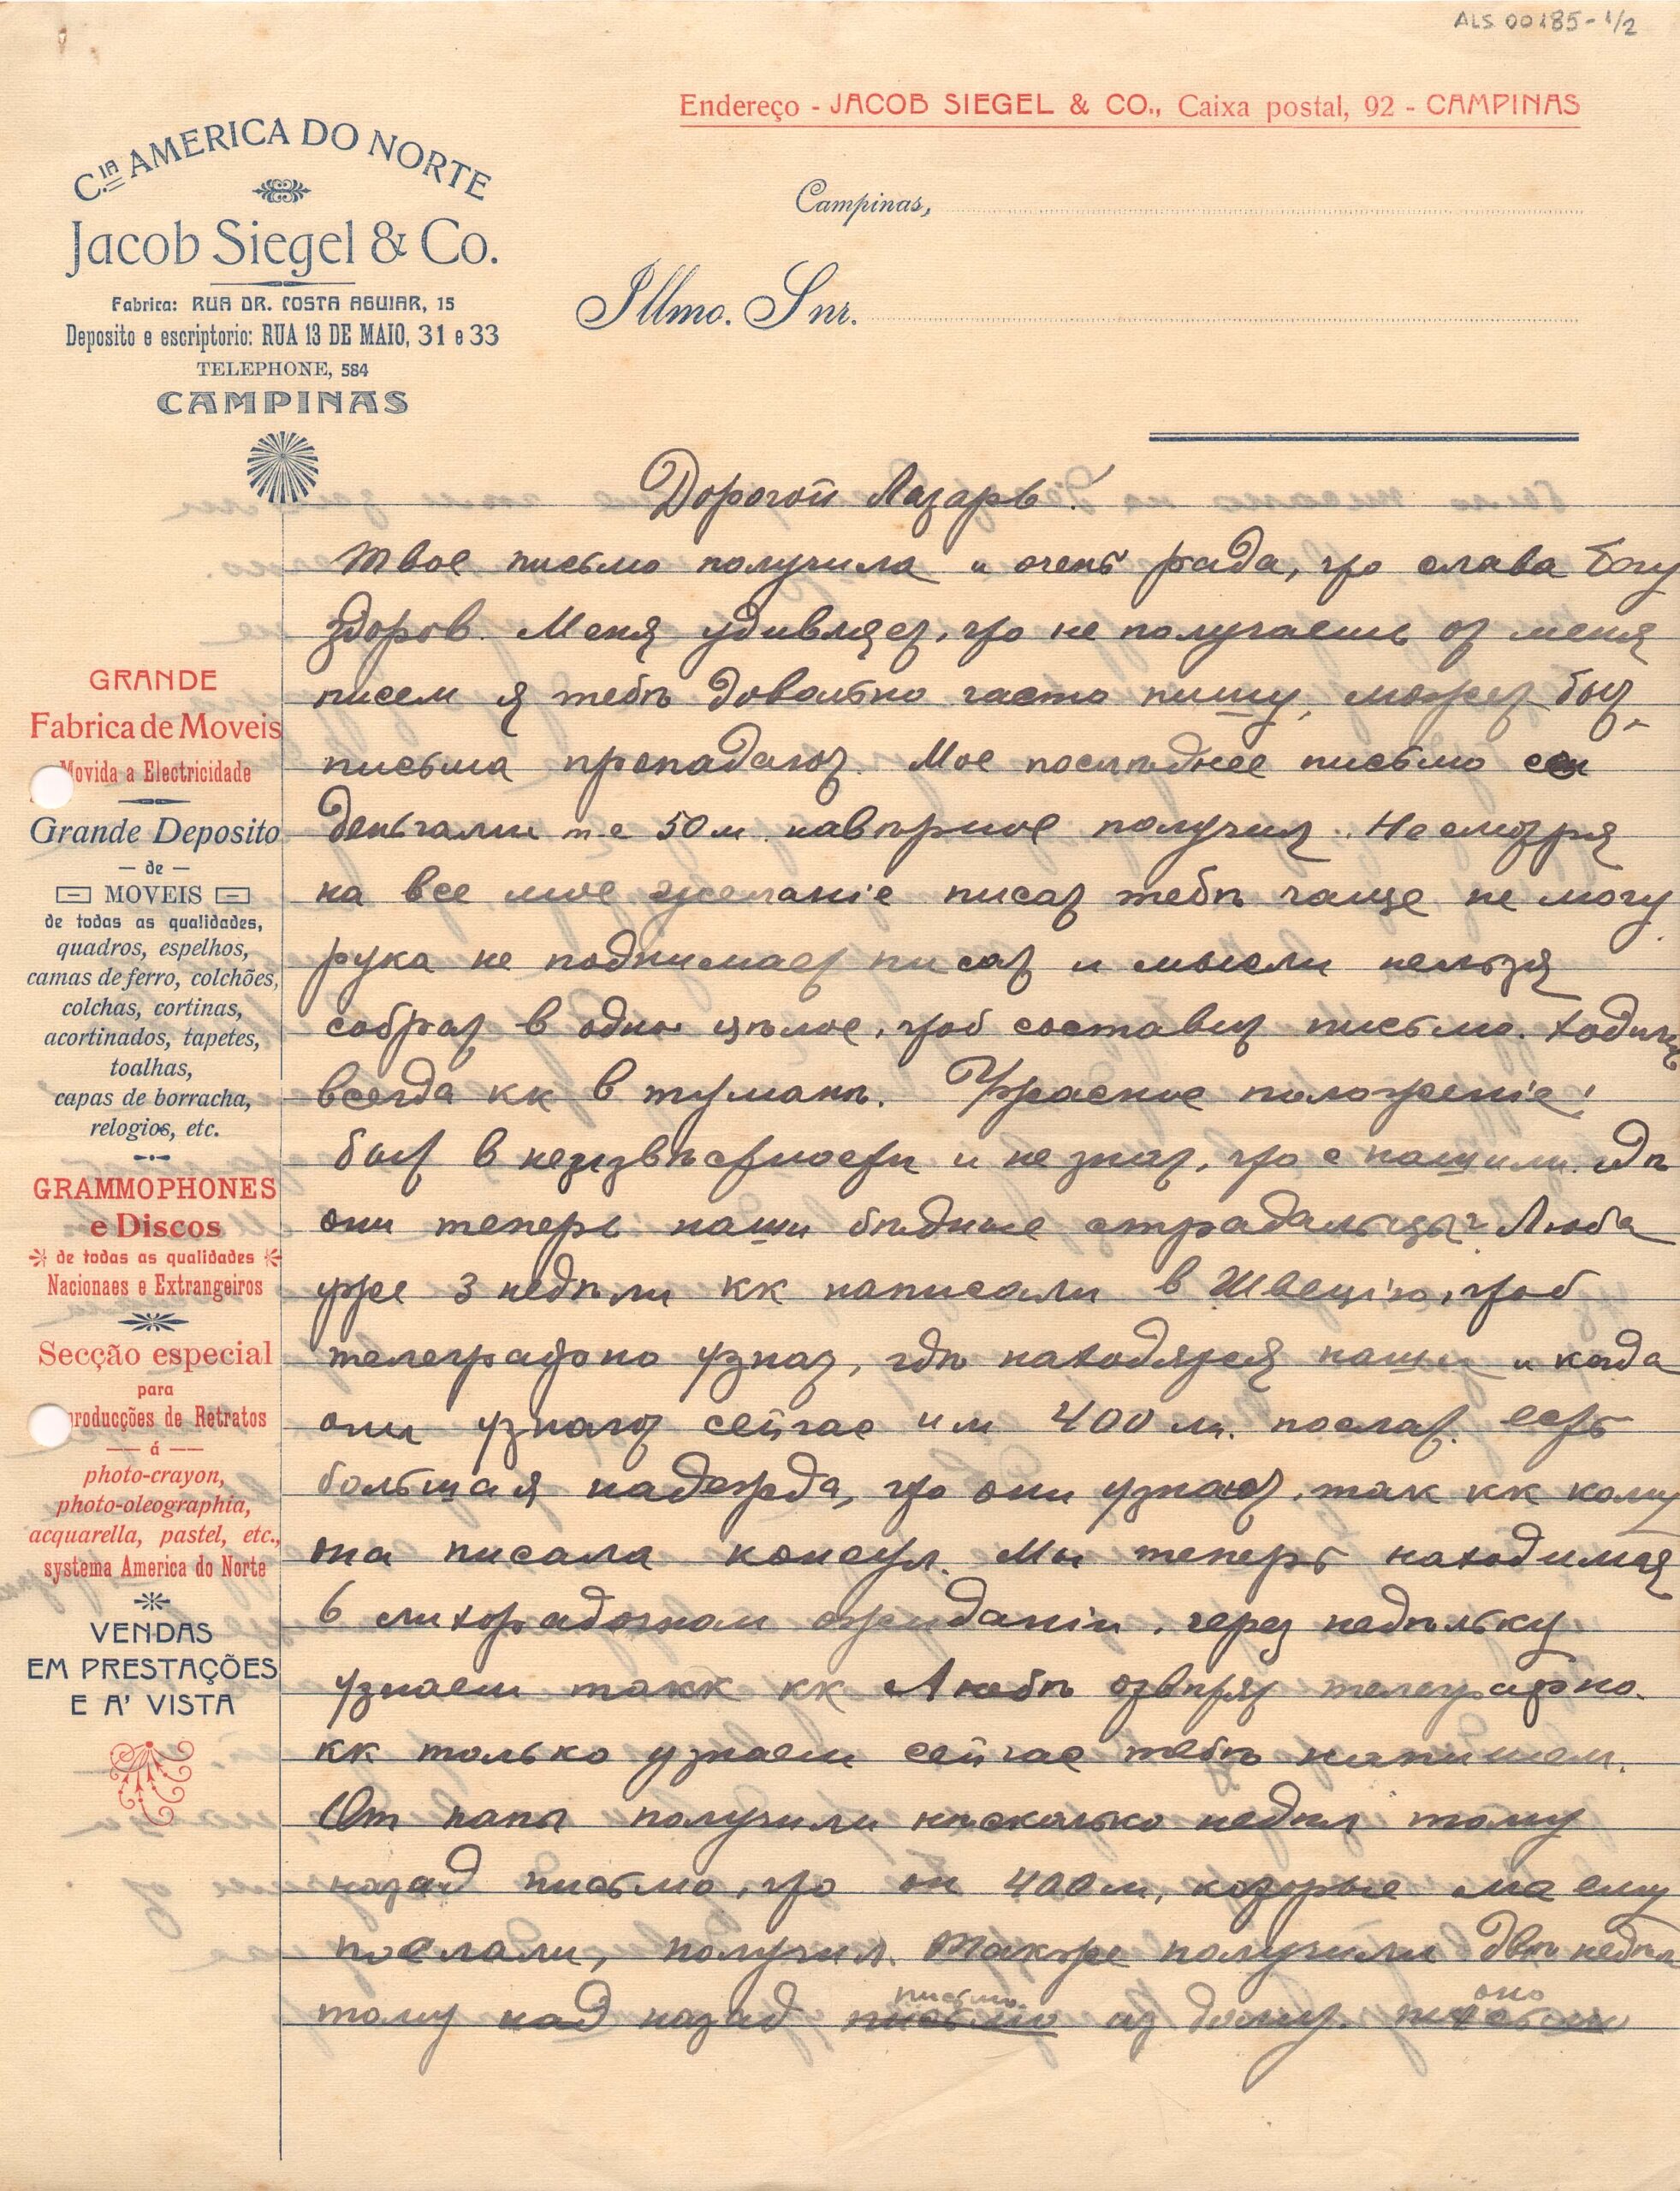 ALS 00185-1/2
Endereço - JACOB SIEGEL & CO., Caixa postal, 92 - CAMPINAS
C.IA AMERICA DO NORTE
Jacob Siegel & Co.
Fabrica: RUA DR. COSTA AGUIAR, 15
Deposito e escriptorio: RUA 13 DE MAIO, 31 e 33
TELEPHONE, 584
CAMPINAS
Campinas,
Illmo. Snr.
GRANDE
Fabrica de Moveis
Movida a Electricidade
Grande Deposito
— de —
MOVEIS
de todas as qualidades,
quadros, espelhos,
camas de ferro, colchões,
colchas, cortinas,
acortinados, tapetes,
toalhas,
capas de borracha,
relogios, etc.
GRAMMOPHONES
e Discos
de todas as qualidades
Nacionaes e Extrangeiros
Secção especial
para
producções de Retratos
— á —
photo-crayon,
photo-oleographia,
acquarella, pastel, etc.,
systema America do Norte
VENDAS
EM PRESTAÇÕES
E A' VISTA
Дорогой Лазарь!
Твое письмо получила и очень рада, что слава Богу
здоров. Меня удивляет, что не получаешь от меня
писем я тебѣ довольно часто пишу, может быт
письма пропадают. Мое послѣднее письмо
деньгами 50 м. навѣрное получил. Несмотря
на все мое желаніе писат тебѣ чаще не могу
рука не поднимает писат и мысли нельзя
собрат в одно цѣлое, чтоб составит письмо. Ходишь
всегда кк в туманѣ. Ужасное положеніе!
быт в неизвѣстности и не знат, что с нашими. гдѣ
они теперь наши бѣдные страдальцы? Люба
уже 3 недѣли кк написали в Швецію, чтоб
телеграфно узнат, гдѣ находятся наши и когда
они узнают сейчас им 400 м. послат. есть
большая надежда, что они узнают, так кк кому
она писала консул. Мы теперь находимся
в лихорадочном ожиданіи, через недѣльку
узнаем такк кк Любѣ отвѣтят телеграфно.
кк только узнаем сейчас тебѣ напишем.
От папы получили нѣсколько недѣл тому
назад письмо, что он 400 м, которые мы ему
послали, получил. Также получили двѣ недѣли
тому над назад письмо письмо из дому. оно